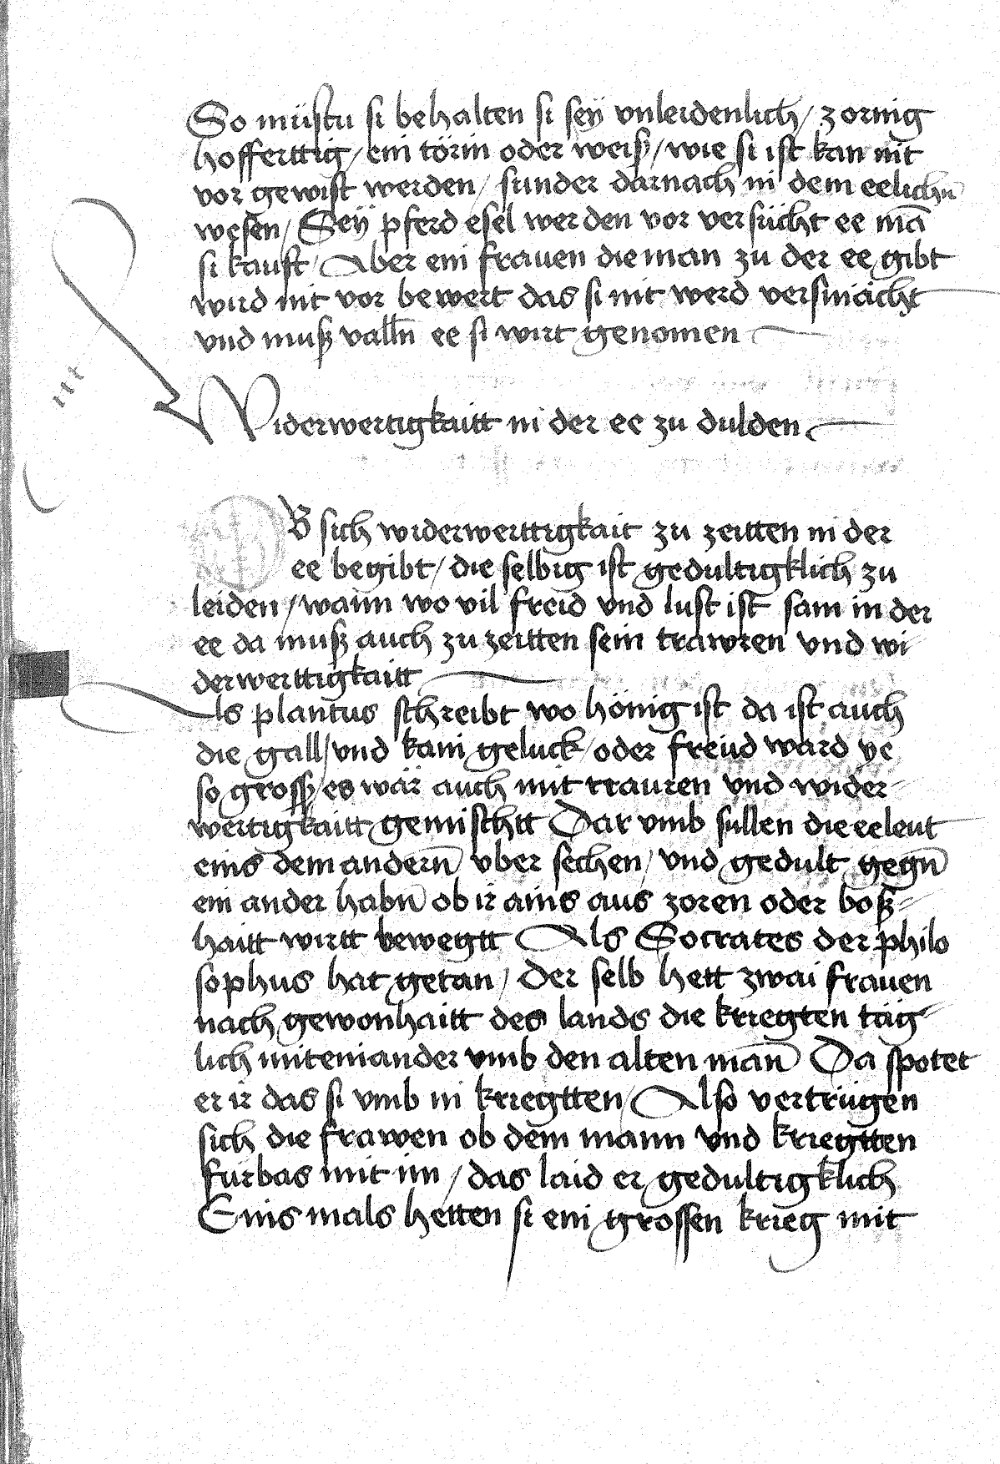 So müstu si behalten si seÿ vnleidenlich / zornig
hofferttig / ein törin oder weiß / wie si ist kan nit
vor gewist werden / sunder darnach in dem eelichn̄
wesen / Seÿ pferd esel werden vor versücht ee mā
si kauft / Aber ein frauen die man zu der ee gibt
wird nit vor bewert das si nit werd versmächt
vnd muß valln̄ ee si wirt genomen
Widerwertigkaitt in der ee zu dulden
OB sich widerwerttigkait zu zeitten in der
ee begibt / die selbig ist gedultigklich zu
leiden / wann wo vil freid vnd lust ist sam in der
ee da muß auch zu zeitten sein trawren vnd wi
derwerttigkaitt
Als plantus schreibt wo hönig ist da ist auch
die gall / vnd kain geluck / oder freüd ward ye
so groß / es wär auch mit trauren vnd wider-
wertigkaitt gemischtt Dar vmb sullen die eeleut
eins dem andern̄ vber sechen / vnd gedult gegn̄
ein ander habn̄ ob ir ains aus zoren oder boß=
haitt wirtt bewegtt Als Socrates der philo
sophus hat getan / Der selb hett zwai frauen
nach gewonhaitt des lands die kriegten täg-
lich miteinander vmb den alten mān Da spotet
er ir das si vmb in kriegtten / Also vertrügen
sich die frawen ob dem mann vnd kriegtten
fürbas mit im / das laid er gedultigklich
Eins mals hetten si ein grossen krieg mit